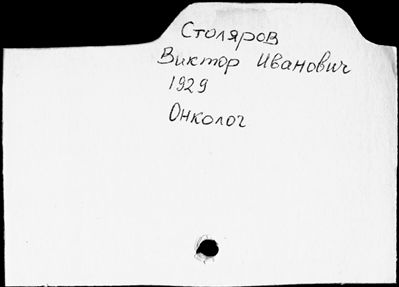 Столяров
Виктор Иванович
1929
Онколог